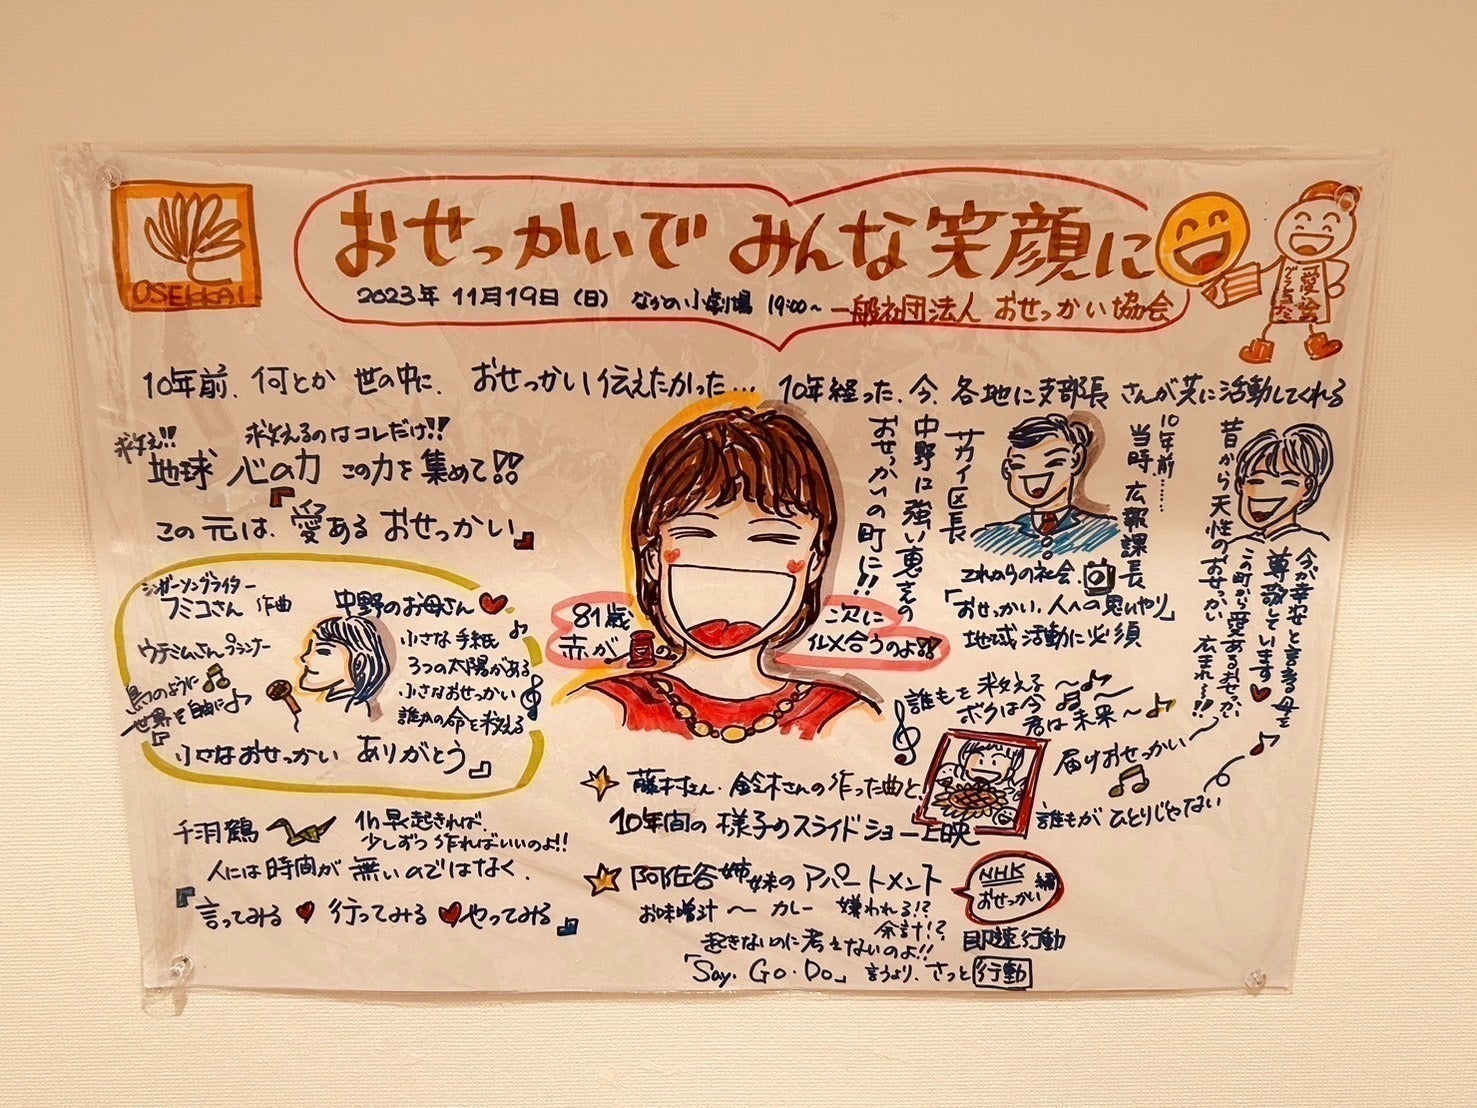 OSEKKAI
おせっかいで みんな笑顔に
2023年 11月19日(日) なかの小劇場 19:00~ 一般社団法人 おせっかい協会
愛絵
10年前、何とか 世の中に、おせっかい伝えたかった… 10年経った、今、各地に支部長 さんが共に活動してくれる
救え!! 救えるのはコレだけ!!
地球 心の力 この力を集めて!!
この 元は、『愛ある おせっかい』
シンガーソングライター
フミコさん 作曲
ウテミムさん プランナー
鳥のように
世界を自由に♪
中野のお母さん♥
小さな手紙♪
3つの太陽がある
小さなおせっかい
誰かの命を救える
小さなおせっかい ありがとう』
千羽鶴
1h早く起きれば、
少しずつ作ればいいのよ!!
人には時間が 無いのではなく、
『言ってみる ♥ 行ってみる ♥ やってみる』
81歳
赤が
の
次に
似合うのよ!!
サカイ区長
中野に強い恵みの
おせっかいの町に!!
10年前……
当時、広報課長
これからの社会、
「おせっかい、人への思いやり」
地域活動に必須
昔から天性のおせっかい
今が幸せと言える母を
尊敬しています♥
この町から愛あるおせっかい
広まれ~!!
誰もを 救える~♪
ボクは今♪~
君は未来~♪
届けおせっかい~
誰もが ひとりじゃない
☆ 藤村さん・鈴木さんの作った曲と、
10年間の 様子のスライドショー上映
☆ 阿佐谷姉妹のアパートメント
NHK 編
おせっかい
お味噌汁 ~ カレー 嫌われる!?
余計!?
即速行動
起きないのに考えないのよ!!
「Say. Go. Do」 言うより、さっと 行動